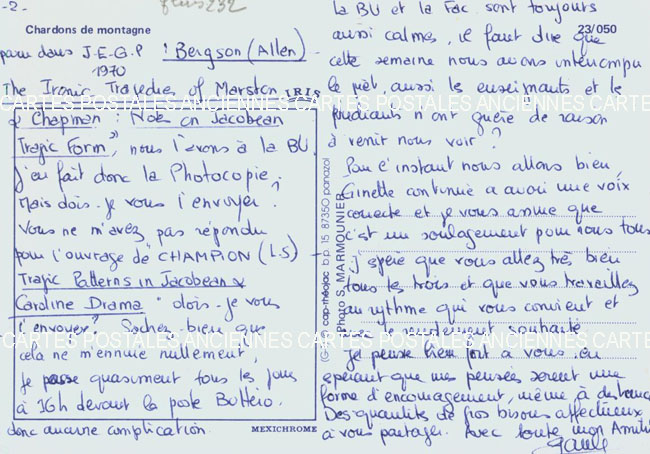 -2-
Chardons de montagne
23/050
paru dans J.E.G.P : Bergson (Allen)
1970
The Ironic Tragedies of Marston
& Chapman : Notes on Jacobean
Tragic Form", nous l'avons à la BU
j'en fait donc la Photocopie,
Mais dois-je vous l'envoyer ?
Vous ne m'avez pas répondu
pour l'ouvrage de CHAMPION (L.S)
Tragic Patterns in Jacobean &
Caroline Drama" dois-je vous
l'envoyer ? Sachez bien que
cela ne m'ennuie nullement,
je passe quasiment tous les jours
à 16h devant la poste
donc aucune complication.
IRIS
MEXICHROME
cap-théojac B.P. 15 87350 panazol
Photo S. MARMOUNIER
la BU et la Fac sont toujours
aussi calmes, il faut dire que
cette semaine nous avons interrompu
le prêt, aussi les enseignants et les
étudiants n'ont guère de raison
à venir nous voir ?
Pour l'instant nous allons bien,
Ginette continue a avoir une voix
correcte et je vous assure que
c'est un soulagement pour nous tous
j'espère que vous allez très bien
tous les trois et que vous travaillez
au rythme qui vous convient et
avec le rendement souhaité
Je pense bien fort à vous en
espérant que mes pensées seront une
forme d'encouragement, même à distance
Des quantités de gros bisous affectueux
à vous partager. Avec toute mon Amitié
CARTES POSTALES ANCIENNES CARTES POSTALES ANCIENNES CARTE